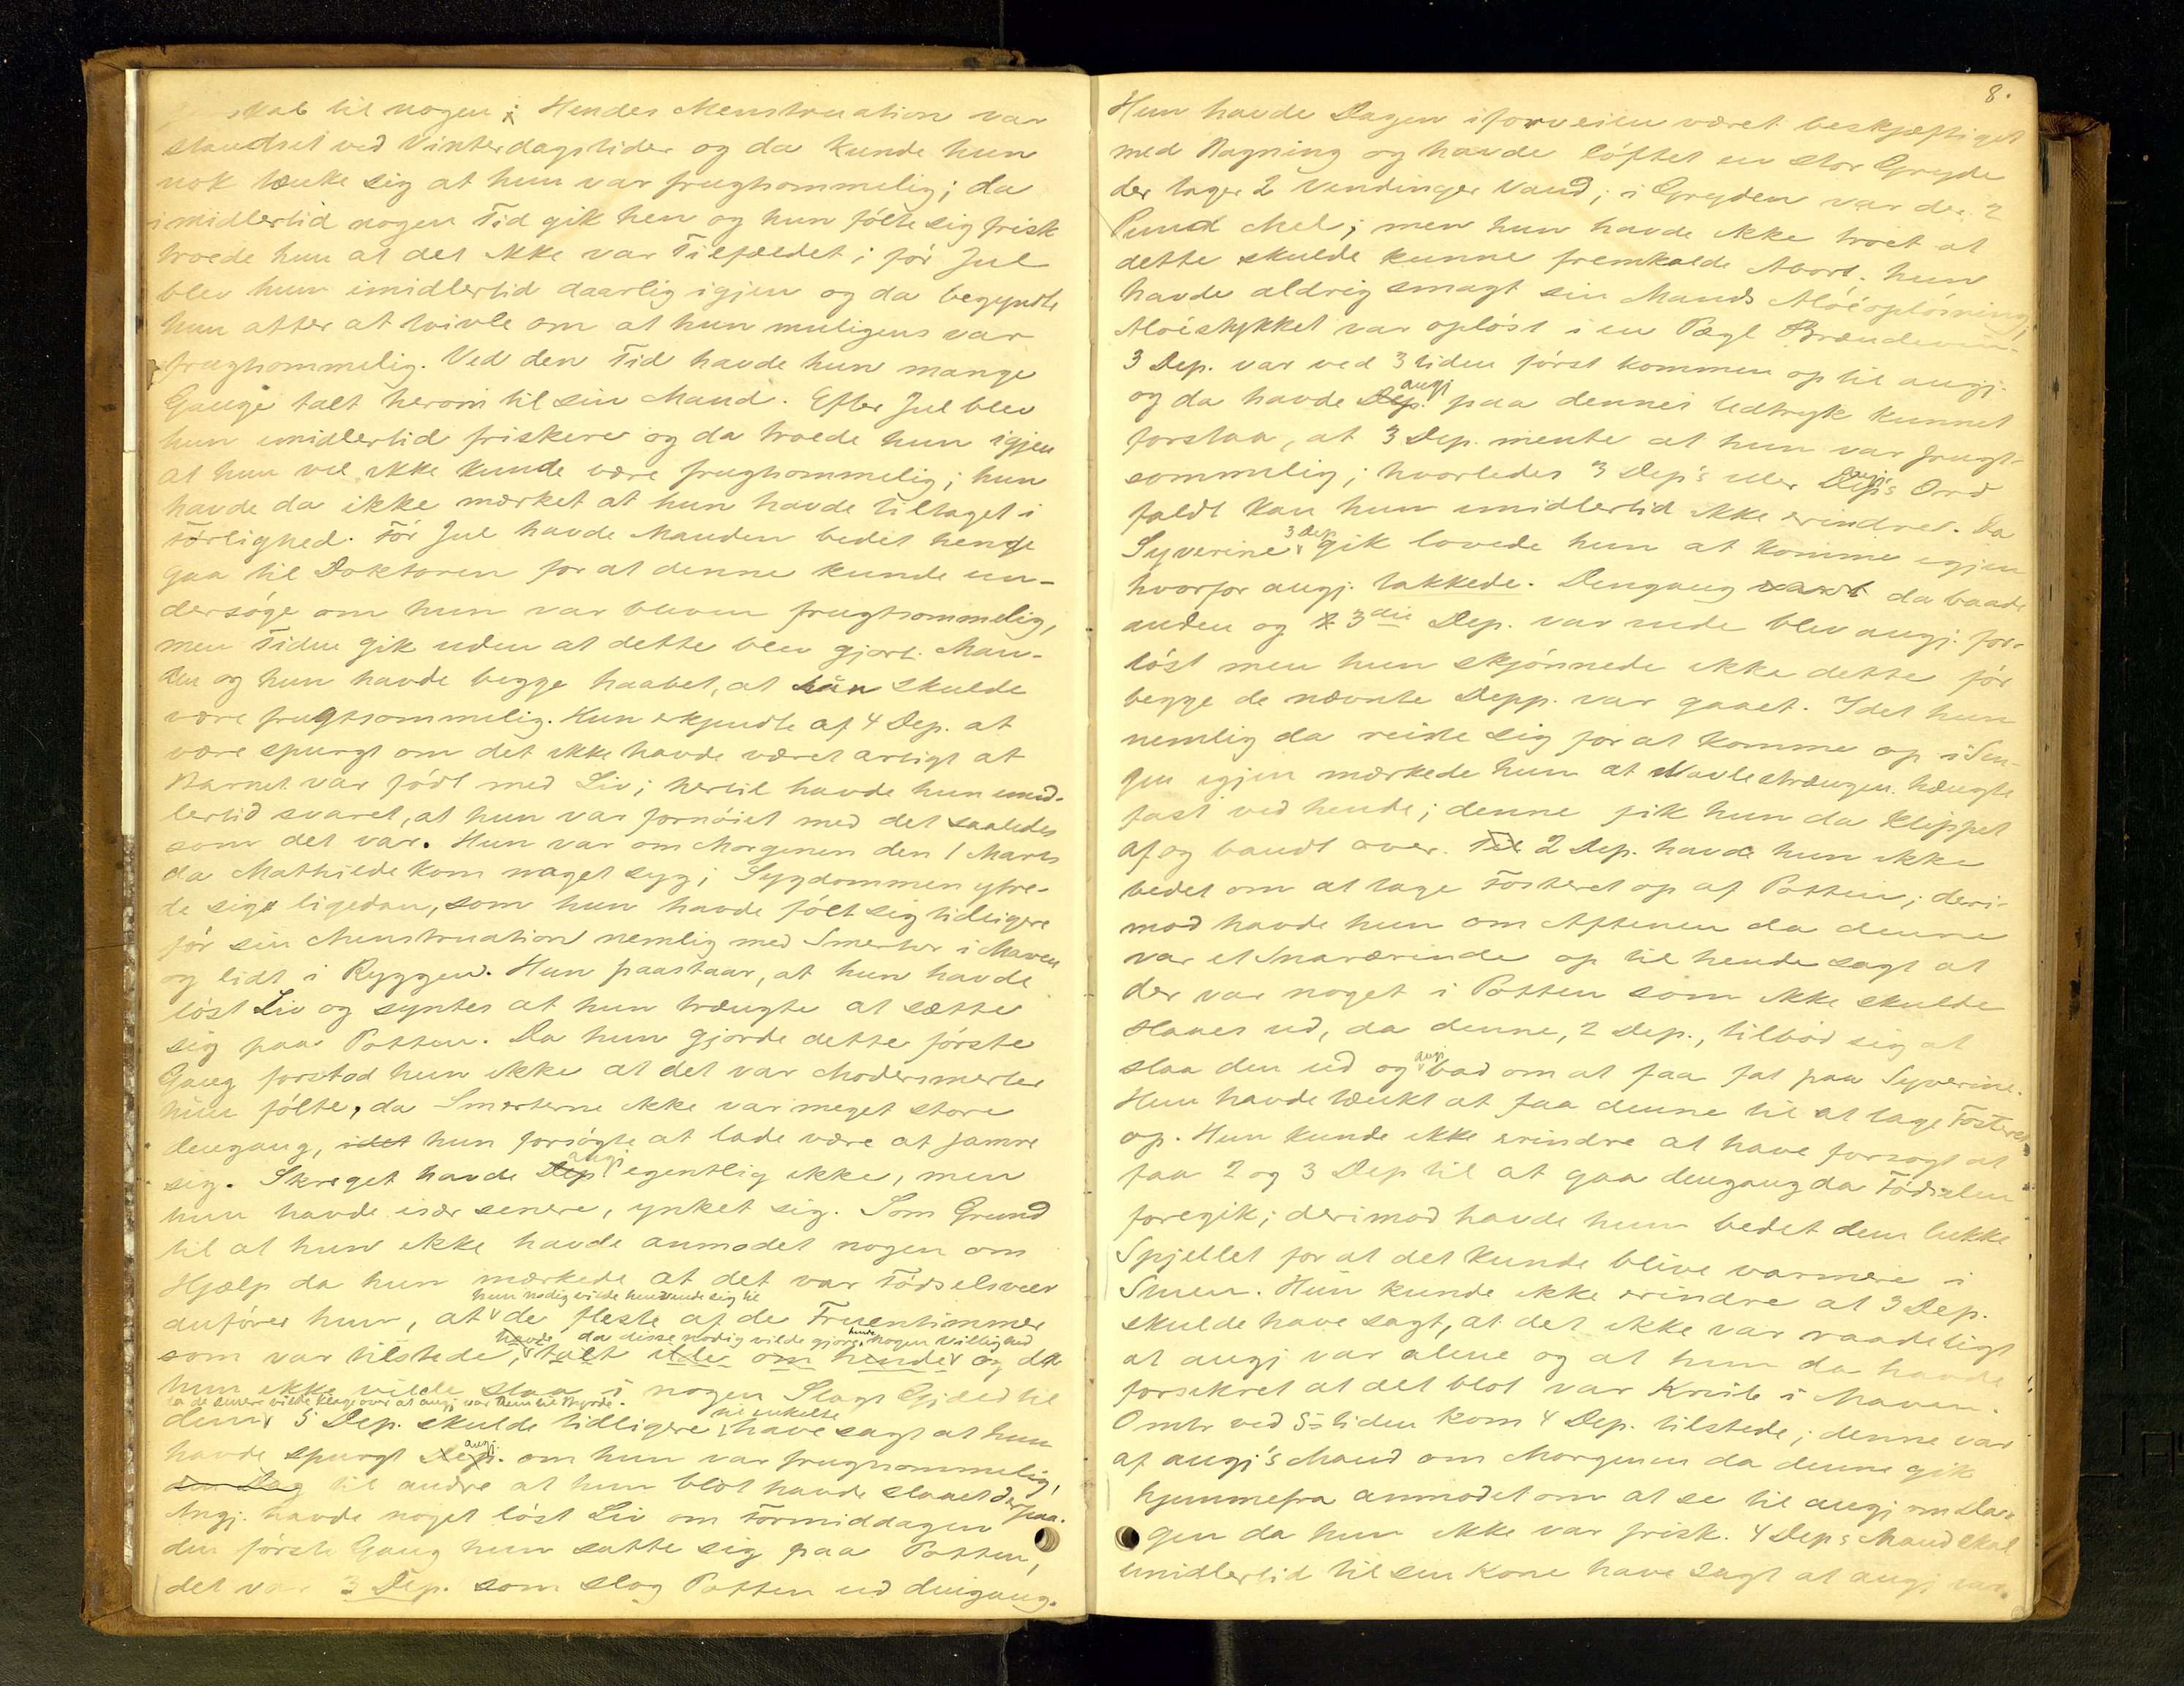 skab til nogen; Hendes Menstruation var
standset ved Vinterdagstider og da kunde hun
nok tænke sig at hun var frugtsommelig; da
imidlertid nogen Tid gik hen og hun følte sig frisk
troede hun at det ikke var Tilfældet; før Jul
blev hun imidlertid daarlig igjen og da begyndte
hun atter at tvivle om at hun muligens var
frugtsommelig. Ved den Tid havde hun mange
Gange talt herom til sin Mand. Efter Jul blev
hun imidlertid friskere og da troede hun igjen
at hun vel ikke kunde være frugtsommelig; hun
havde da ikke mærket at hun havde tiltaget i
Førlighed. Før Jul havde Manden bedet hende
gaa til Doktoren for at denne kunde un-
dersøge om hun var bleven frugtsommelig,
men Tiden gik uden at dette blev gjort. Man-
den og hun havde begge haabet, at hun skulde
være frugtsommelig. Hun erkjendte af 4 Dep. at
være spurgt om det ikke havde været artigt at
Barnet var født med Liv; hertil havde hun imid-
lertid svaret, at hun var fornøiet med det saaledes
som det var. Hun var om Morgenen den 1 Marts
da Mathilde kom meget syg; Sygdommen ytre-
de sig ligedan, som hun havde følt sig tidligere
før sin Menstruation nemlig med Smerter i Maven
og lidt i Ryggen. Hun paastaar, at hun havde
løst Liv og syntes at hun trængte at sætte
sig paa Potten. Da hun gjorde dette første
Gang forstod hun ikke at det var Modersmerter
hun følte, da Smerterne ikke var meget store
dengang, idet hun forsøgte at lade være at jamre
sig. Skreget havde Dep angj egentlig ikke, men
hun havde især senere, ynket sig. Som Grund
til at hun ikke havde anmodet nogen om
Hjælp da hun mærkede at det var Fødselsveer
hun nødig vilde henvende sig til
anfører hun, at de fleste af de Fruentimmer
havde, da disse nødig vilde gjøre hende nogen Villighed
som var tilstede, talt ilde om hende og da
hun ikke vilde staa i nogen Slags Gjæld til
da de senere vilde klage over at angj var dem til Byrde.
dem 5 Dep. skulde tidligere til enkelte have sagt at hun
havde spurgt Dep. angj. om hun var frugtsommelig,
en Dag til andre at hun blot havde slaaet derpaa.
Angj. havde noget løst Liv om Formiddagen
den første Gang hun satte sig paa Potten,
det var 3 Dep. som slog Potten ud dengang.
8.
Hun havde Dagen iforveien været beskjæftiget
med Bagning og havde løftet en stor Gryde
der tager 2 Vendinger Vand; i Gryden var der 2
Pund Mel; men hun havde ikke troet at
dette skulde kunne fremkalde Abort. hun
havde aldrig smagt sin Mands Aloéopløsning;
Aloéstykket var opløst i en Pægl Brændevin.
3 Dep. var ved 3 tiden først kommen op til angj.
og da havde Dep. angj paa dennes Udtryk kunnet
forstaa, at 3 Dep. mente at hun var frugt-
sommelig; hvorledes 3 Dep's eller Dep's angj's Ord
faldt kan hun imidlertid ikke erindre. Da
Syverine 3 Dep gik lovede hun at komme igjen
hvorfor angj. takkede. Dengang da baade
anden og 3die Dep. var inde blev angj. for-
løst men hun skjønnede ikke dette før
begge de nævnte Depp. var gaaet. Idet hun
nemlig da reiste sig for at komme op i Sen-
gen igjen mærkede hun at Navlestrængen hængte
fast ved hende; denne fik hun da klippet
af og bandt over. Til 2 Dep. havde hun ikke
bedet om at tage Fosteret op af Potten; deri-
mod havde hun om Aftenen da denne
var et Snarærinde op til hende sagt at
der var noget i Potten som ikke skulde
slaaes ud, da denne, 2 Dep., tilbød sig at
slaa den ud og angj bad om at faa fat paa Syverine.
Hun havde tænkt at faa denne til at tage Fosteret
op. Hun kunde ikke erindre at have forsøgt at
faa 2 og 3 Dep til at gaa dengang da Fødselen
foregik; derimod havde hun bedet dem lukke
Spjellet for at det kunde blive varmere i
Stuen. Hun kunde ikke erindre at 3 Dep.
skulde have sagt, at det ikke var raadeligt
at angj var alene og at hun da havde
forsikret at det blot var Knib i Maven.
Omtr ved 5-tiden kom 4 Dep. tilstede; denne var
af angj's Mand om Morgenen da denne gik
hjemmefra anmodet om at se til angj om Da-
gen da hun ikke var frisk. 4 Dep's Mand skal
imidlertid til sin Kone have sagt at angj var